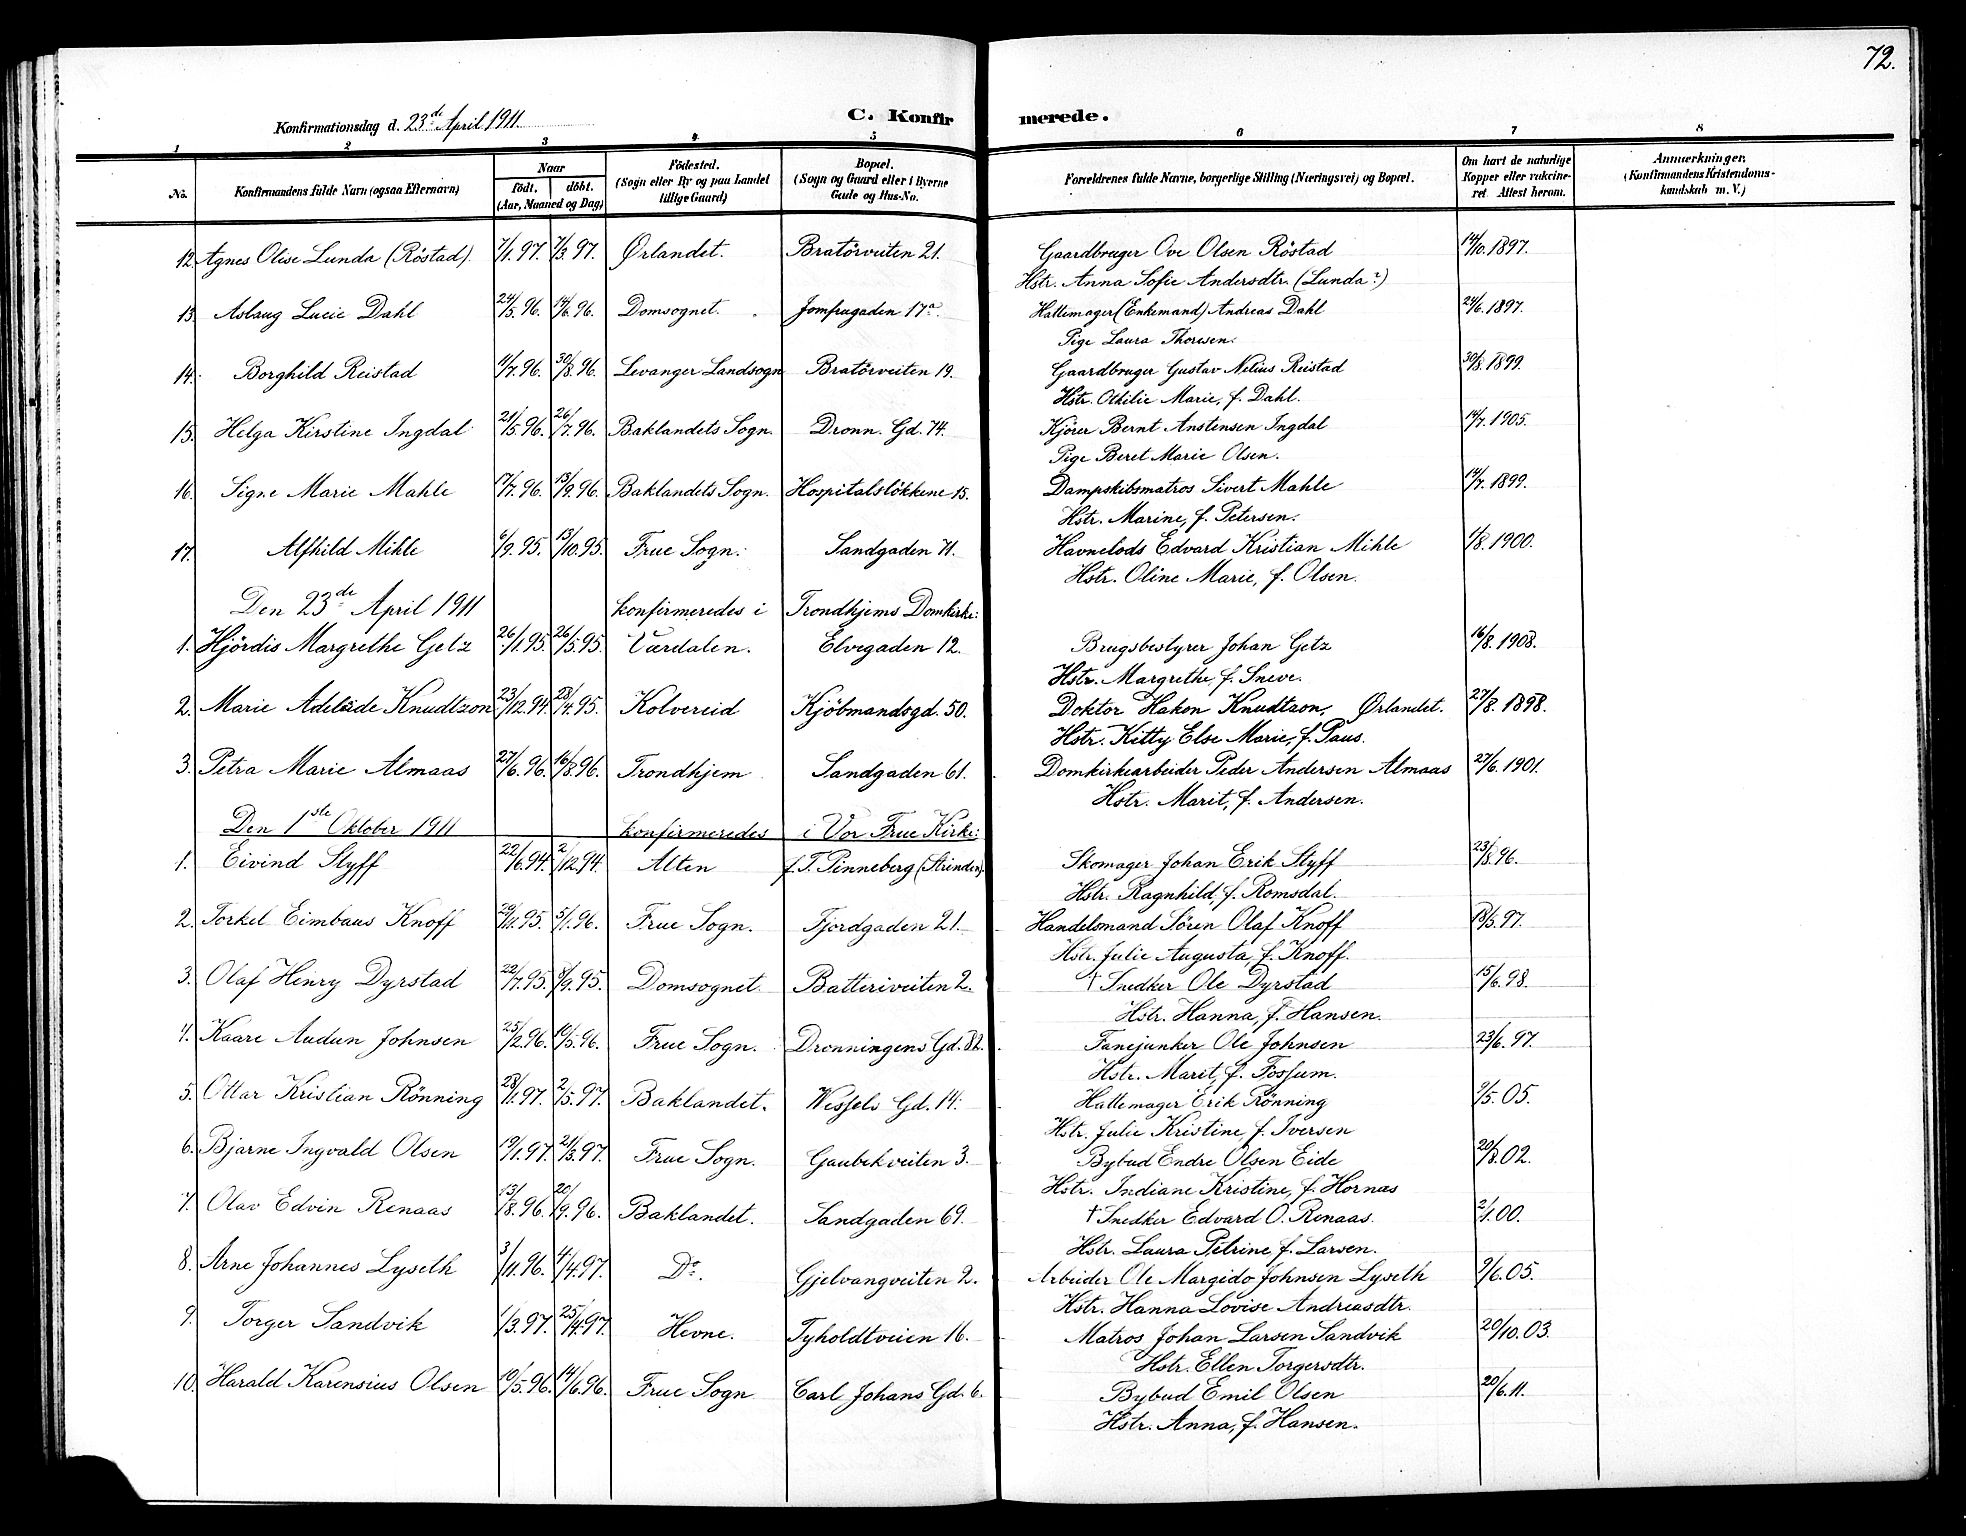 72.
Konfirmationsdag d. 23de April 1911.
C. Konfirmerede.
1 2 3 4 5 6 7 8
No. Konfirmandens fulde Navn (ogsaa Efternavn) Naar födt. döbt. (Aar, Maaned og Dag) Födested. (Sogn eller By og paa Landet tillige Gaard) Bopæl. (Sogn og Gaard eller i Byerne Gade og Hus-No. Forældrenes fulde Navne, borgerlige Stilling (Næringsvei) og Bopæl. Om havt de naturlige Kopper eller vakcineret. Attest herom. Anmerkninger. (Konfirmandens Kristendomskundskab m. V.)
12. Agnes Olise Lunda (Röstad). 7/1.97. 7/3.97. Ørlandet. Bratörveiten 21. Gaardbruger Ove Olsen Röstad 14/10.1897.
Hstr. Anna Sofie Andersdtr. (Lunda?)
13. Aslaug Lucie Dahl 24/5.96. 14/6.96. Domsognet. Jomfrugaden 17a. Hattemager (Enkemand) Andreas Dahl 24/6.1897.
Pige Laura Thoresen.
14. Borghild Reistad 11/7.96. 30/8.96. Levanger Landsogn Bratörveiten 19. Gaardbruger Gustav Nelius Reistad 30/8.1899.
Hstr. Othilie Marie, f. Dahl.
15. Helga Kirstine Ingdal 21/5.96. 26/7.96. Baklandets Sogn. Dronn. Gd. 74. Kjörer Bernt Anstensen Ingdal 14/7.1905.
Pige Beret Marie Olsen.
16. Signe Marie Mahle 17/7.96. 13/9.96. Baklandets Sogn. Hospitalslökkene 15. Dampskibsmatros Sivert Mahle 14/7.1899.
Hstr. Marine, f. Petersen.
17. Alfhild Mihle 6/9.95. 13/10.95. Frue Sogn. Sandgaden 71. Havnelods Edvard Kristian Mihle 1/8.1900.
Hstr. Oline Marie, f. Olsen.
Den 23de April 1911 konfirmeredes i Trondhjems Domkirke:
1. Hjördis Margrethe Getz 26/1.95. 26/5.95. Værdalen. Elvegaden 12. Brugsbestyrer Johan Getz 16/8.1908.
Hstr. Margrethe, f. Sneve.
2. Marie Adelaide Knudtzon 23/12.94. 28/4.95. Kolvereid Kjöbmandsgd. 50. Doktor Hakon Knudtzon, Ørlandet. 27/8.1898.
Hstr. Kitty Else Marie, f. Paus.
3. Petra Marie Almaas 27/6.96. 16/8.96. Trondhjem Sandgaden 61. Domkirkearbeider Peder Andersen Almaas 27/6.1901.
Hstr. Marit, f. Andersen.
Den 1ste Oktober 1911 konfirmeredes i Vor Frue Kirke:
1. Eivind Styff 22/6.94. 2/12.94. Alten f. T. Pinneberg (Strinden). Skomager Johan Erik Styff 23/8.96.
Hstr. Ragnhild, f. Romsdal.
2. Torkel Eimbaus Knoff 29/11.95. 5/1.96. Frue Sogn. Fjordgaden 21. Handelsmand Sören Olaf Knoff 18/5.97.
Hstr. Julie Augusta, f. Knoff.
3. Olaf Henry Dyrstad 22/7.95. 8/9.95. Domsognet. Batteriveiten 2. † Snedker Ole Dyrstad 15/6.98.
Hstr. Hanna, f. Hansen.
4. Kaare Audun Johnsen 25/2.96. 10/5.96. Frue Sogn. Dronningens Gd. 82. Fanejunker Ole Johnsen 23/6.97.
Hstr. Marit, f. Fossum.
5. Ottar Kristian Rönning 28/1.97. 2/5.97. Baklandet. Wessels Gd. 14. Hattemager Erik Rönning 9/5.05.
Hstr. Julie Kristine, f. Iversen
6. Bjarne Ingvald Olsen 19/1.97. 21/3.97. Frue Sogn. Gaubekveiten 3. Bybud Endre Olsen Eide 20/8.02.
Hstr. Indiane Kristine, f. Hornas
7. Olav Edvin Renaas 13/8.96. 20/9.96. Baklandet. Sandgaden 69. † Snedker Edvard O. Renaas. 2/1.00.
Hstr. Laura Petrine, f. Larsen.
8. Arne Johannes Lyseth 3/11.96. 4/4.97. Do. Gjelvangveiten 2. Arbeider Ole Margido Johnsen Lyseth 9/6.05.
Hstr. Hanna Lovise Andreasdtr.
9. Torger Sandvik 1/3.97. 25/4.97. Hevne. Tyholdtveien 16. Matros Johan Larsen Sandvik 20/10.03.
Hstr. Ellen Torgersdtr.
10. Harald Karensius Olsen 10/5.96. 14/6.96. Frue Sogn Carl Johans Gd. 6. Bybud Emil Olsen 20/6.11.
Hstr. Anna, f. Hansen.